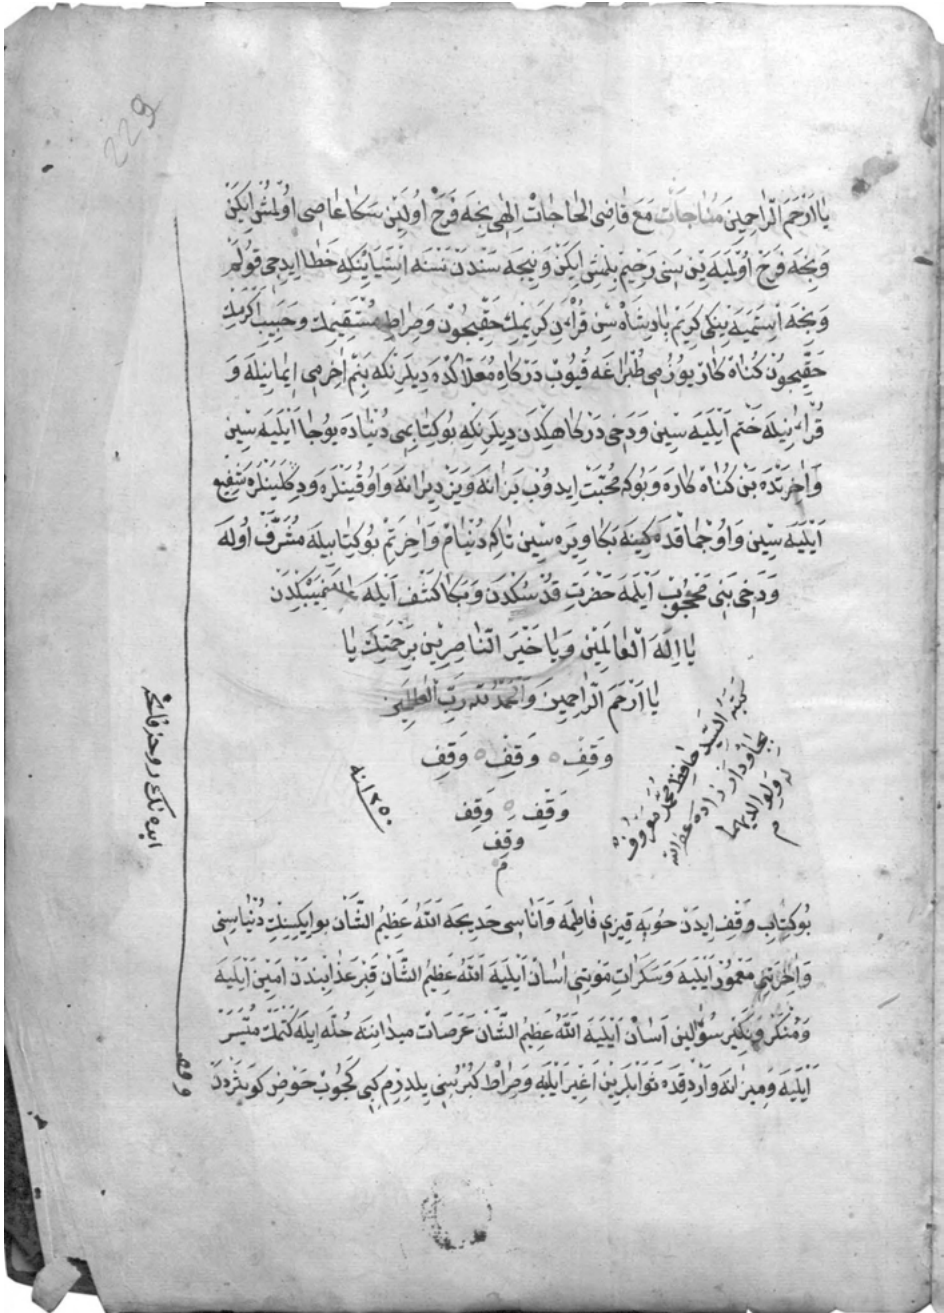 229
يَا اَرْحَمَ الرَّاحِمِينَ مُنَاجَاتْ مَعَ قَاضِى الْحَاجَاتْ اِلٰهِى نِجَه فَرَحْ اُولَيِنْ سَكَا عَاصِى اُولْمُشْ اِيكَنْ
وَنِجَه فَرَحْ اُولْمَيَه يِنْ سِنِى رَحِيمْ بِلْمِشْ اِيكَنْ وَنِيجَه سَنْدَنْ نَسْنَه اِسْتَيَايِنْكِه خَطَا اِيدِجِى قُولَمْ
وَنِجَه اِسْتَمَيَه يِنْكِى كَرِيمْ پَادِشَاهْ سِنْ قُرْاٰنِ كَرِيمِكْ حَقِّيچُونْ وَصِرَاطِ مُسْتَقِيمِكْ وَحَبِيبِ اَكْرَمِكْ
حَقِّيچُونْ كُنَاهْ كَارْ يُوزُمِى طُپْرَاغَه قُيُوبْ دَرْكَاهِ مُعَلَّاكْدَه دِيلَرِنْكِه بَنِمْ اٰخِرِمِى اِيمَانِيلَه وَ
قُرْاٰنِيلَه خَتْمْ اَيْلَيَه سِينْ وَدَخِى دَرْكَاهِكْدَنْ دِيلَرِنْكِه بُو كِتَابِمِى دُنْيَادَه يُوجَا اَيْلَيَه سِينْ
وَاٰخِرَتْدَه بَنْ كُنَاهْ كَارَه وَبُوكَه مُحَبَّتْ اِيدُوبْ يَزَانَه وَيَزْدِيرَانَه وَاوُقُيَنْلَرَه وَدِكْلَيَنْلَرَه شَفِيعْ
اَيْلَيَه سِينْ وَاوُچْمَاقْدَه كِينَه بَكَا وِيرَه سِينْ تَاكِه دُنْيَامْ وَاٰخِرَتِمْ بُو كِتَابِيلَه مُشَرَّفْ اُولَه
وَدَخِى بَنِى مَحْجُوبْ اَيْلَمَه حَضْرَتِ قُدْسُكْدَنْ وَبَكَا كَشْفْ اَيْلَه
يَا اِلٰهَ الْعَالَمِينَ وَيَا خَيْرَ النَّاصِرِينَ بِرَحْمَتِكَ يَا
يَا اَرْحَمَ الرَّاحِمِينَ وَالْحَمْدُ لِلّٰهِ رَبِّ الْعَالَمِينَ
وَقِفْ ٥ وَقِفْ ٥ وَقِفْ
وَقِفْ ٥ وَقِفْ
وقف
م
كتبه السيد حافظ محمد معروف
زاده عفر الله
له ولوالديهما
م
بُو كِتَابِ وَقْفْ اِيدَنْ قِيزِى فَاطِمَه وَانَاسِى خَدِيجَه اَللّٰهُ عَظِيمُ الشَّانْ بُو اِيكِيسِنِكْ دُنْيَاسِنِى
وَاٰخِرَتِنِى مَعْمُورْ اَيْلَيَه وَسَكَرَاتِ مَوْتِنِى اٰسَانْ اَيْلَيَه اَللّٰهُ عَظِيمُ الشَّانْ قَبِرْ عَذَابِنْدَنْ اَمِينْ اَيْلَيَه
وَمُنْكَرْ وَنَكِيرْ سُؤٰالِينْ اٰسَانْ اَيْلَيَه اَللّٰهُ عَظِيمُ الشَّانْ عَرَصَاتْ مَيْدَانِنَه حُلَّه اِيلَه كِتْمَكْ مُيَسَّرْ
اَيْلَيَه وَمِيزَانَه وَارْدِقْدَه ثَوَابْلَرِينْ اَغِيرْ اَيْلَيَه وَصِرَاطْ كُپْرُسُنِى يِلْدِرِمْ كِبِى كَچُوبْ حَوْضِ كَوْثَرْدَنْ